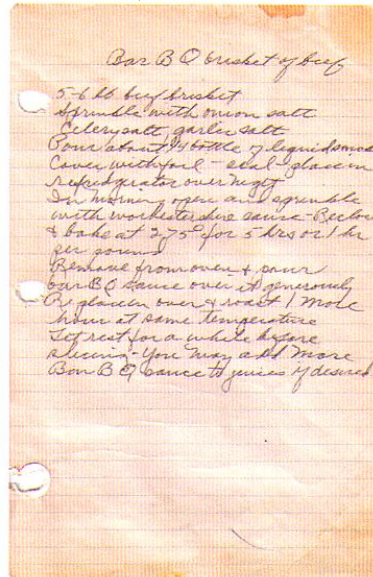 Bar B Q brisket of beef
5-6 lb beef brisket
Sprinkle with onion salt
Celery salt, garlic salt
Pour about 1/4 bottle of liquid smoke
Cover with foil - seal - place in
refrigerator over night
In morning open and sprinkle
with worchestershire sauce -
& bake at 275° for 5 hrs or 1 hr
per pound
Remove from oven & pour
bar B Q sauce over it generously
Re place in oven & roast 1 more
hour at same temperature
Let rest for a while before
slicing - You may add more
Bar B Q sauce to juices if desired